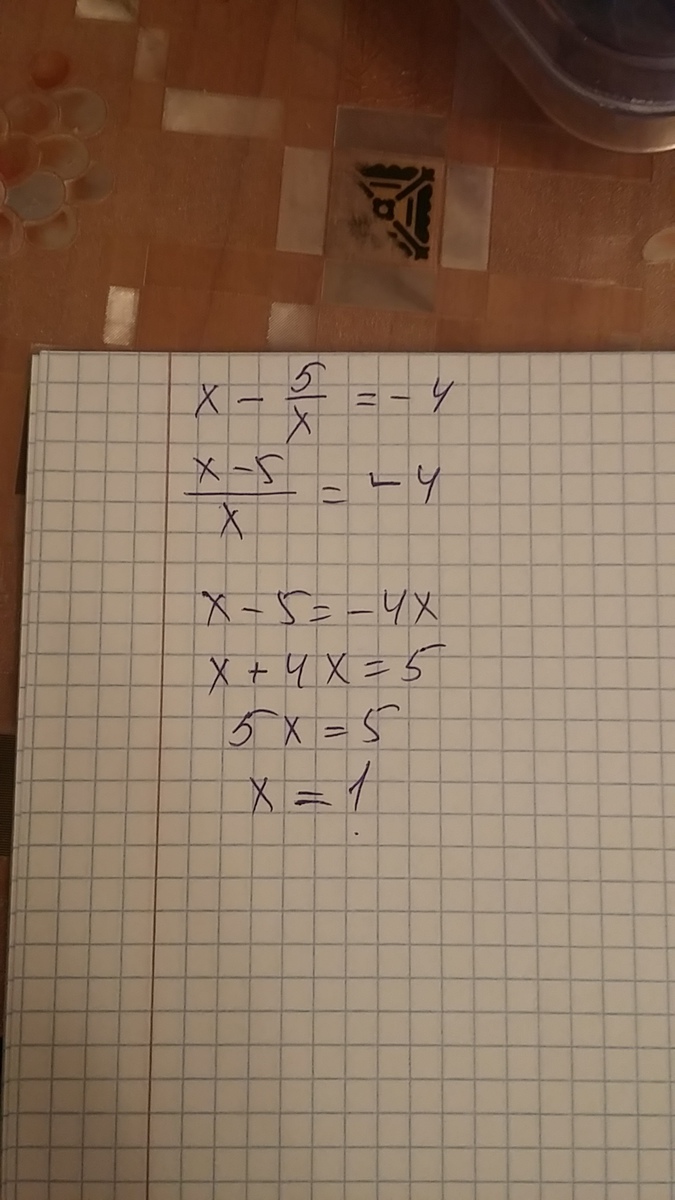 x - 5/x = - 4
(x - 5)/x = - 4
x - 5 = - 4x
x + 4x = 5
5x = 5
x = 1